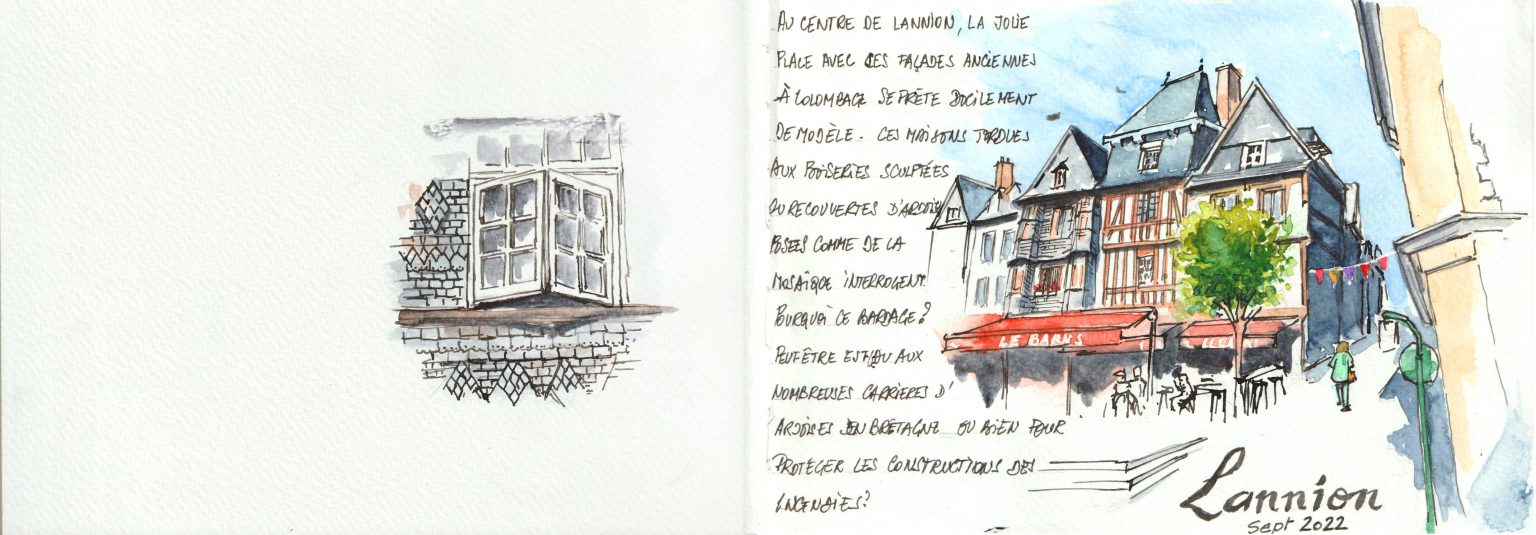 AU CENTRE DE LANNION, LA JOLIE
PLACE AVEC SES FAÇADES ANCIENNES
À COLOMBAGE SE PRÈTE DOCILEMENT
DE MODÈLE. CES MAISONS TORDUES
AUX BOISERIES SCULPTÉES
OU RECOUVERTES D'ARDOISE
POSÉES COMME DE LA
MOSAÏQUE INTERROGENT.
POURQUOI CE BARDAGE?
PEUT ÊTRE EST DU AUX
NOMBREUSES CARRIÈRES D'
ARDOISES EN BRETAGNE OU BIEN POUR
PROTÉGER LES CONSTRUCTIONS DES
INCENDIES?
LE BARN'S
Lannion
Sept 2022